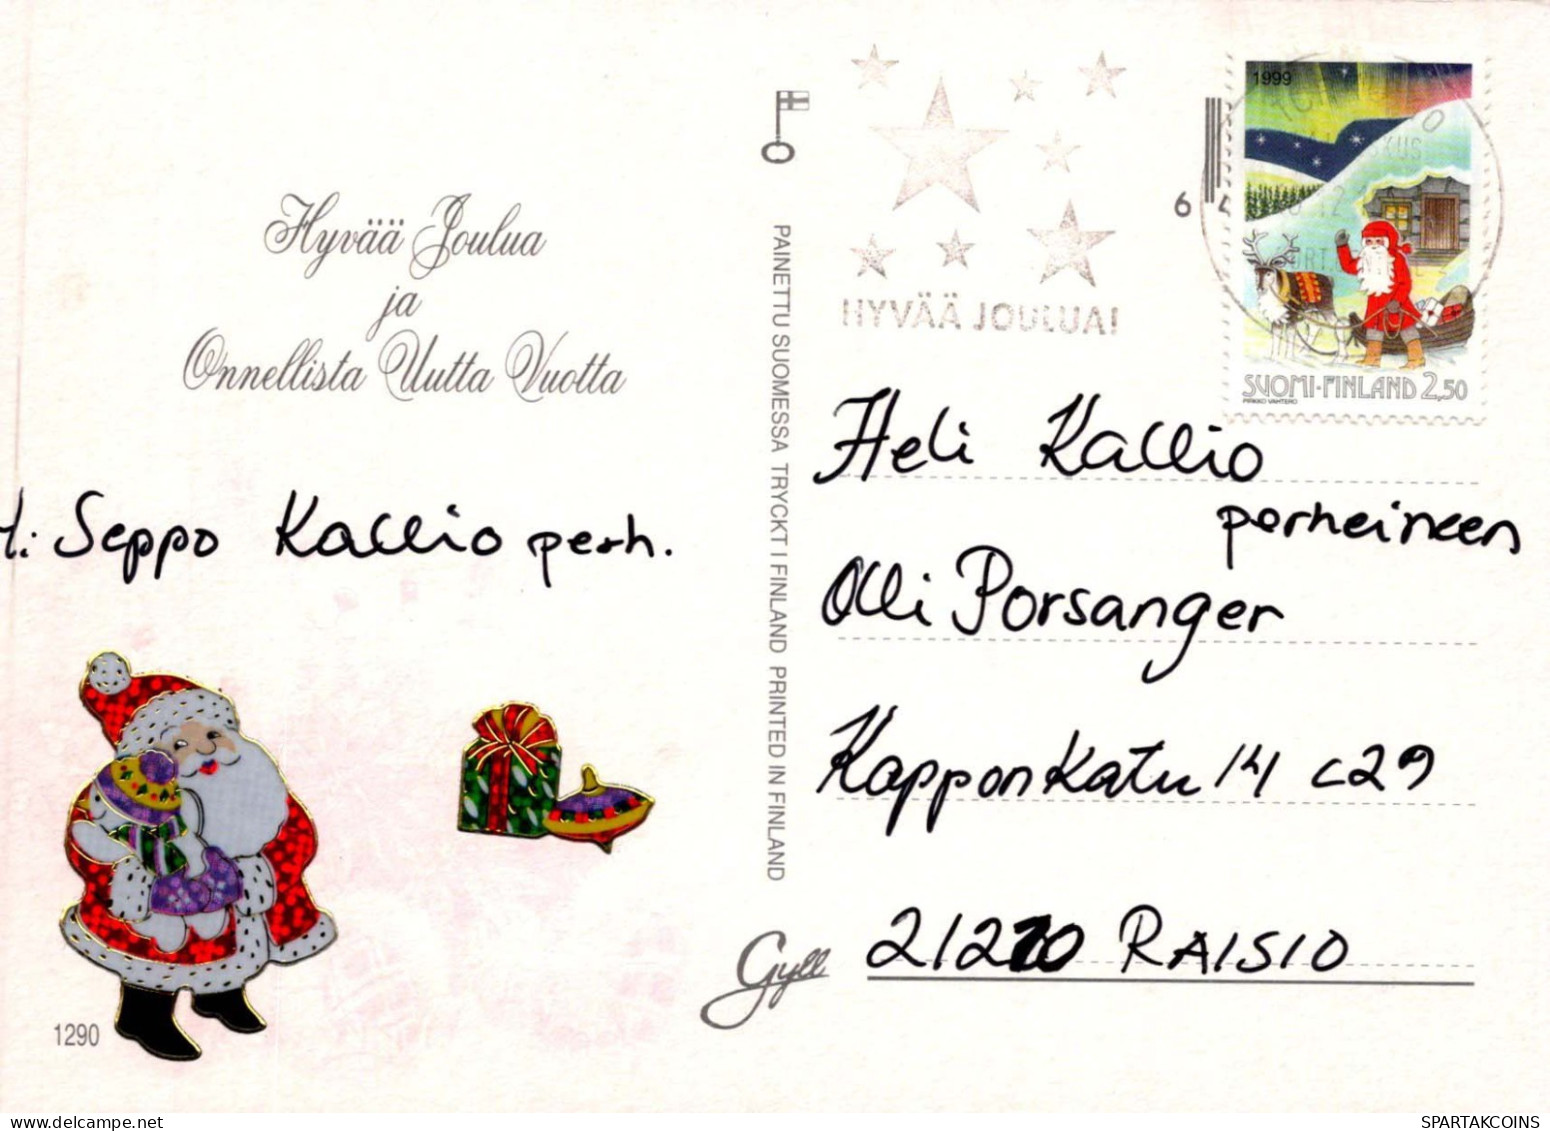 Hyvää Joulua
ja
Onnellista Uutta Vuotta
: Seppo Kallio perh.
1290
PAINETTU SUOMESSA TRYCKT I FINLAND PRINTED IN FINLAND
Gyll
HYVÄÄ JOULUA!
6
1999
SUOMI-FINLAND 2,50
PIRKKO VAHTERO
Heli Kallio
perheineen
Olli Porsanger
Kapponkatu 14 C29
21210 RAISIO
SPARTAKCOINS